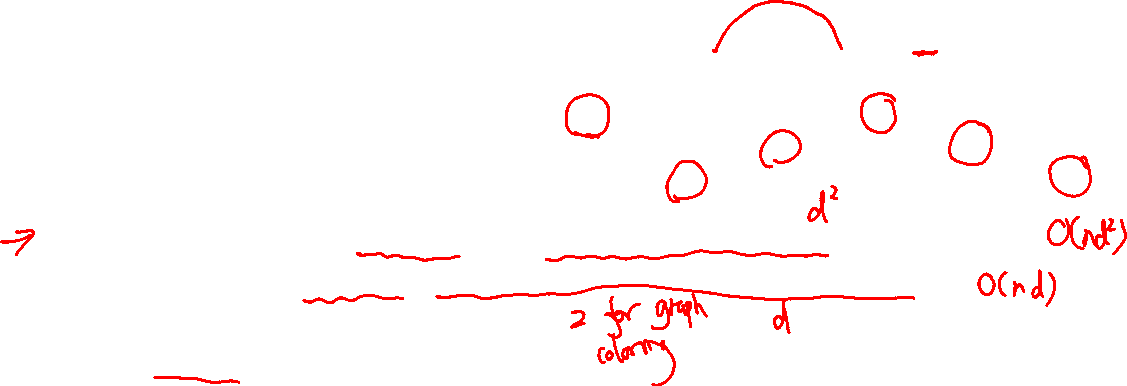 d²
O(nd²)
O(nd)
2 for graph d
coloring